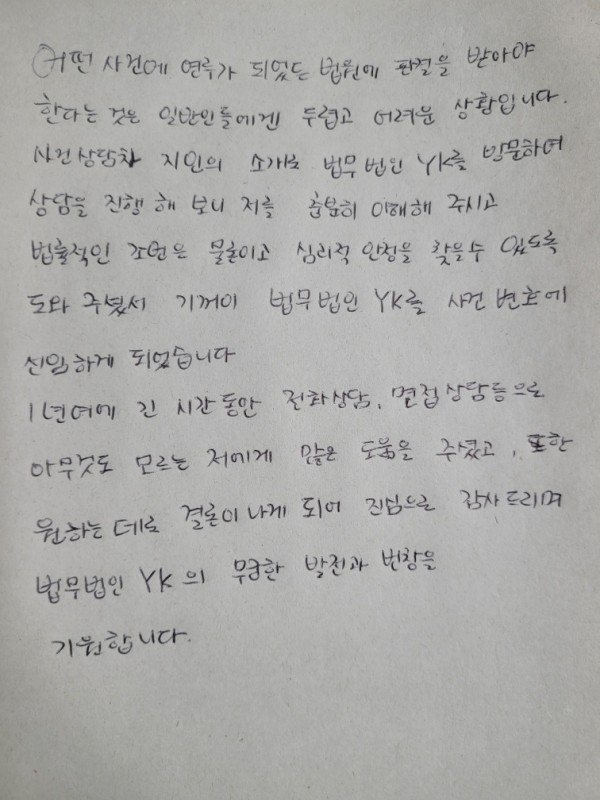 어떤 사건에 연루가 되었든 법원에 판결을 받아야
한다는 것은 일반인들에겐 두렵고 어려운 상황입니다.
사건 상담차 지인의 소개로 법무법인 YK를 방문하여
상담을 진행 해 보니 저를 충분히 이해해 주시고
법률적인 조언은 물론이고 심리적 안정을 찾을수 있도록
도와 주셨서 기꺼이 법무법인 YK를 사건 변호에
신임하게 되었습니다
1년여에 긴 시간동안 전화상담, 면접상담등으로
아무것도 모르는 저에게 많은 도움을 주셨고, 또한
원하는 데로 결론이 나게 되어 진심으로 감사 드리며
법무법인 YK의 무궁한 발전과 번창을
기원합니다.